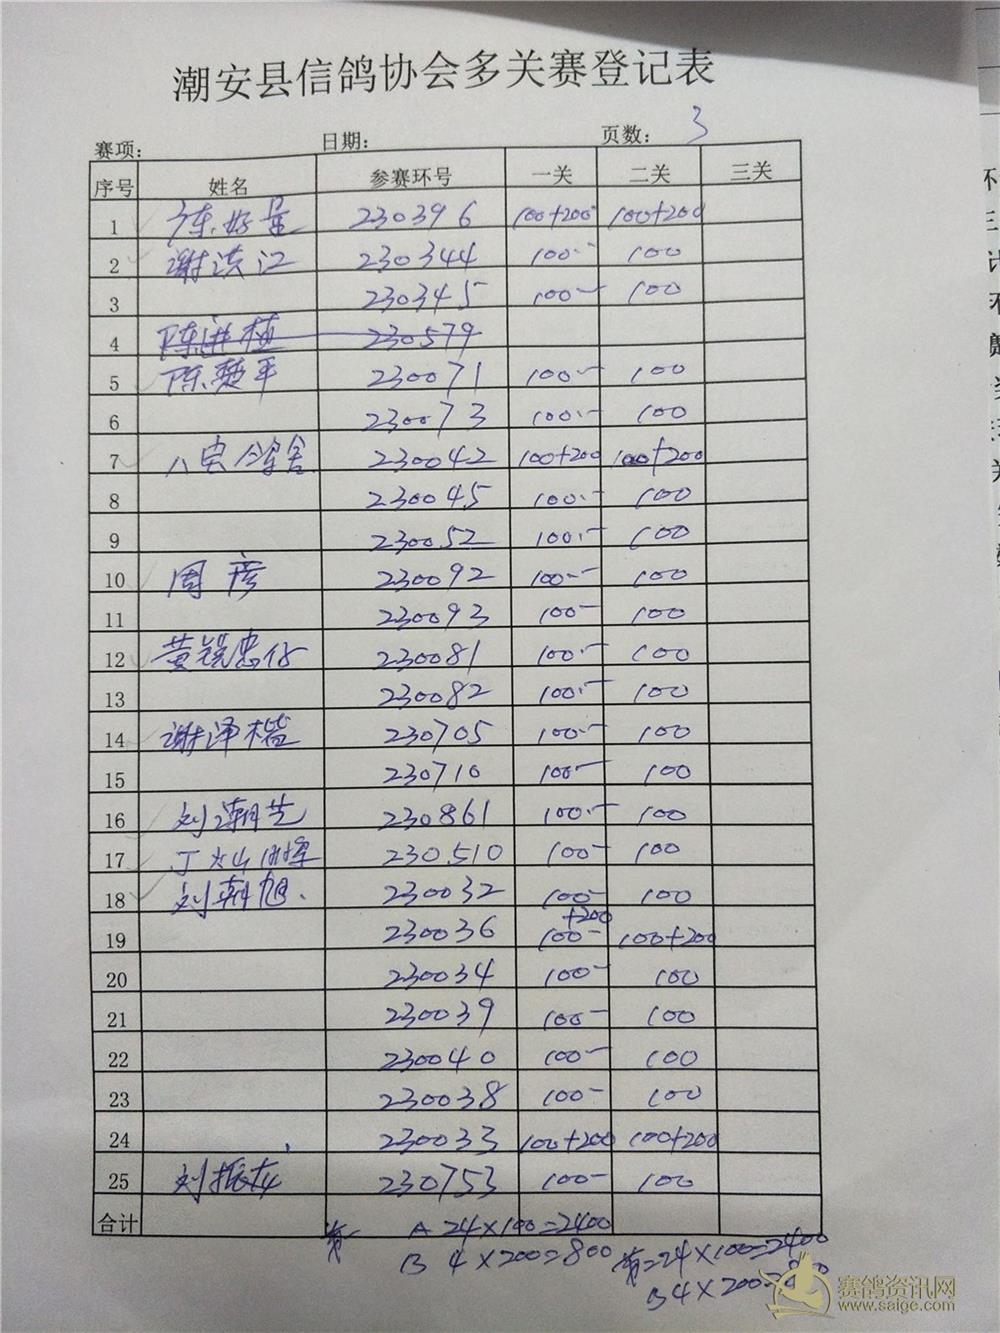 潮安县信鸽协会多关赛登记表
赛项: 日期: 页数: 3
序号 姓名 参赛环号 一关 二关 三关
1 陈好量 230396 100+200 100+200
2 谢洪江 230344 100.- 100
3 230345 100- 100
4 陈进植 230579
5 陈楚平 230071 100.- 100
6 230073 100.- 100
7 八虫鸽舍 230042 100+200 100+200
8 230045 100.- 100
9 230052 100.- 100
10 周彦 230092 100.- 100
11 230093 100- 100
12 黄锐忠仔 230081 100.- 100
13 230082 100.- 100
14 谢泽楷 230705 100.- 100
15 230710 100.- 100
16 刘潮先 230861 100.- 100
17 丁火山 230510 100- 100
18 刘朝旭. 230032 100- 100
19 230036 100-+200 100+200
20 230034 100- 100
21 230039 100- 100
22 230040 100- 100
23 230038 100- 100
24 230033 100+200 100+200
25 刘振龙 230753 100- 100
合计
第一 A 24×100=2400
B 4×200=800
第二24×100=2400
B4×200=800
赛鸽资讯网
www.saige.com